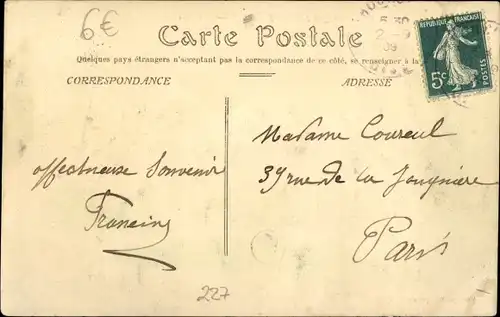 6€
Carte Postale
Quelques pays étrangers n'acceptant pas la correspondance de ce côté, se renseigner à la
CORRESPONDANCE
ADRESSE
REPUBLIQUE FRANÇAISE
5c
POSTES
5 30
2
09
Madame
affectueuse Souvenir
39 rue de la
Paris
227